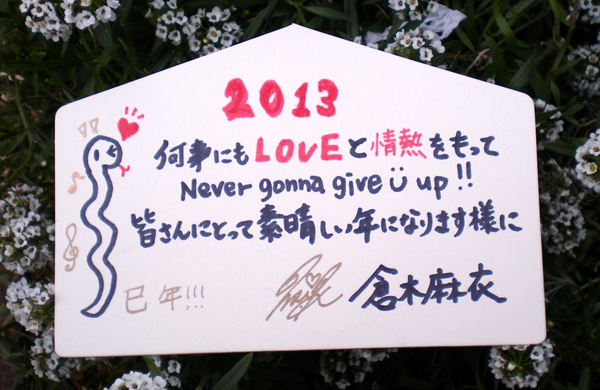 2013
何事にもLOVEと情熱をもって
Never gonna give Ü up!!
皆さんにとって素晴しい年になります様に
巳年!!!
倉木麻衣